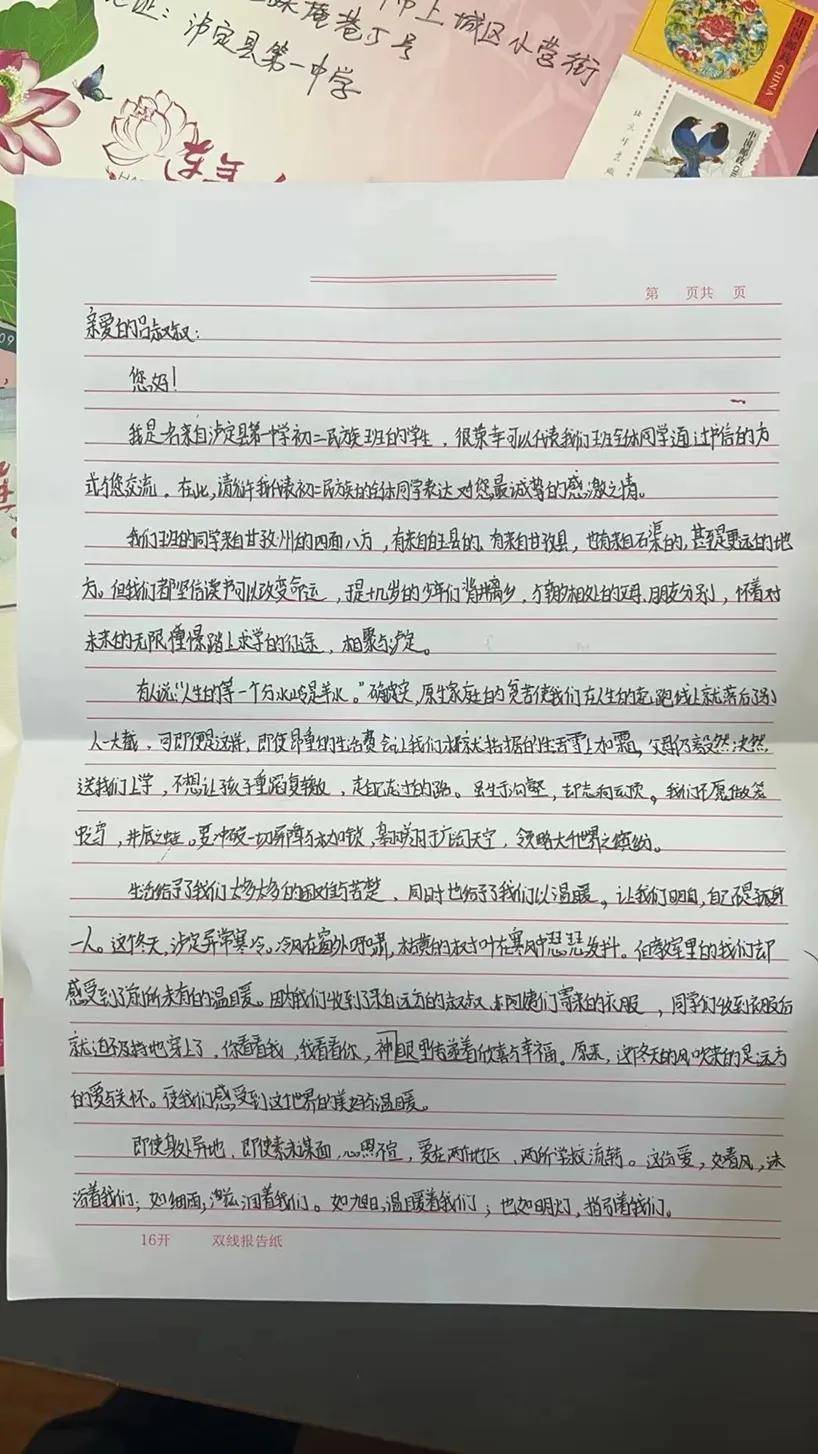 市上城区小营街
巷5号
泸定县第一中学
中国邮政 CHINA
中国邮政
09
第 页共 页
亲爱的吕叔叔:
您好!
我是一名来自泸定县第一中学初二民族班的学生，很荣幸可以代表我们班全体同学通过书信的方
式与您交流。在此,请允许我代表初二民族班的全体同学表达对您最诚挚的感激之情。
我们班的同学来自甘孜州的四面八方，有来自的、有来自甘孜县，也有来自石渠的,甚至是更远的地
方。但我们都坚信读书可以改变命运，于是十几岁的少年们背井离乡，与朝夕相处的父母、朋友分别，怀着对
未来的无限憧憬踏上求学的征途，相聚与泸定。
有人说:“人生的第一个分水岭是羊水。”确实,原生家庭的贫苦使我们在人生的起跑线上就落后了别
人一大截，可即便是这样，即使昂贵的生活费会让我们本就拮据的生活雪上加霜,父母仍毅然决然
送我们上学，不想让孩子重蹈覆辙，走自己走过的路。虽生于沟壑，却志向云顶。我们不愿做
，井底之蛙。要冲破一切屏障与枷锁，天空，领略大千世界之缤纷。
生活给予了我们太多太多的困难与苦楚，同时也给予了我们以温暖。让我们明白,自己不是孤身
一人。这个冬天,泸定异常寒冷。冷风在窗外呼啸,枯黄的树叶在寒风中瑟瑟发抖。但教室里的我们却
感受到了前所未有的温暖。因为我们收到了来自远方的叔叔、阿姨们寄来的衣服，同学们收到衣服后
就迫不及待地穿上了，你看看我，我看看你，眼里传递着欣喜与幸福。原来，这个冬天的风吹来的是远方
的爱与关怀。使我们感受到这世界的美好与温暖。
即使身处异地、即使素未谋面,心照不宣，爱在两个地区、两所学校流转。这份爱，如春风,沐
浴着我们；如细雨,滋润着我们。如旭日,温暖着我们；也如明灯，指引着我们。
16开 双线报告纸